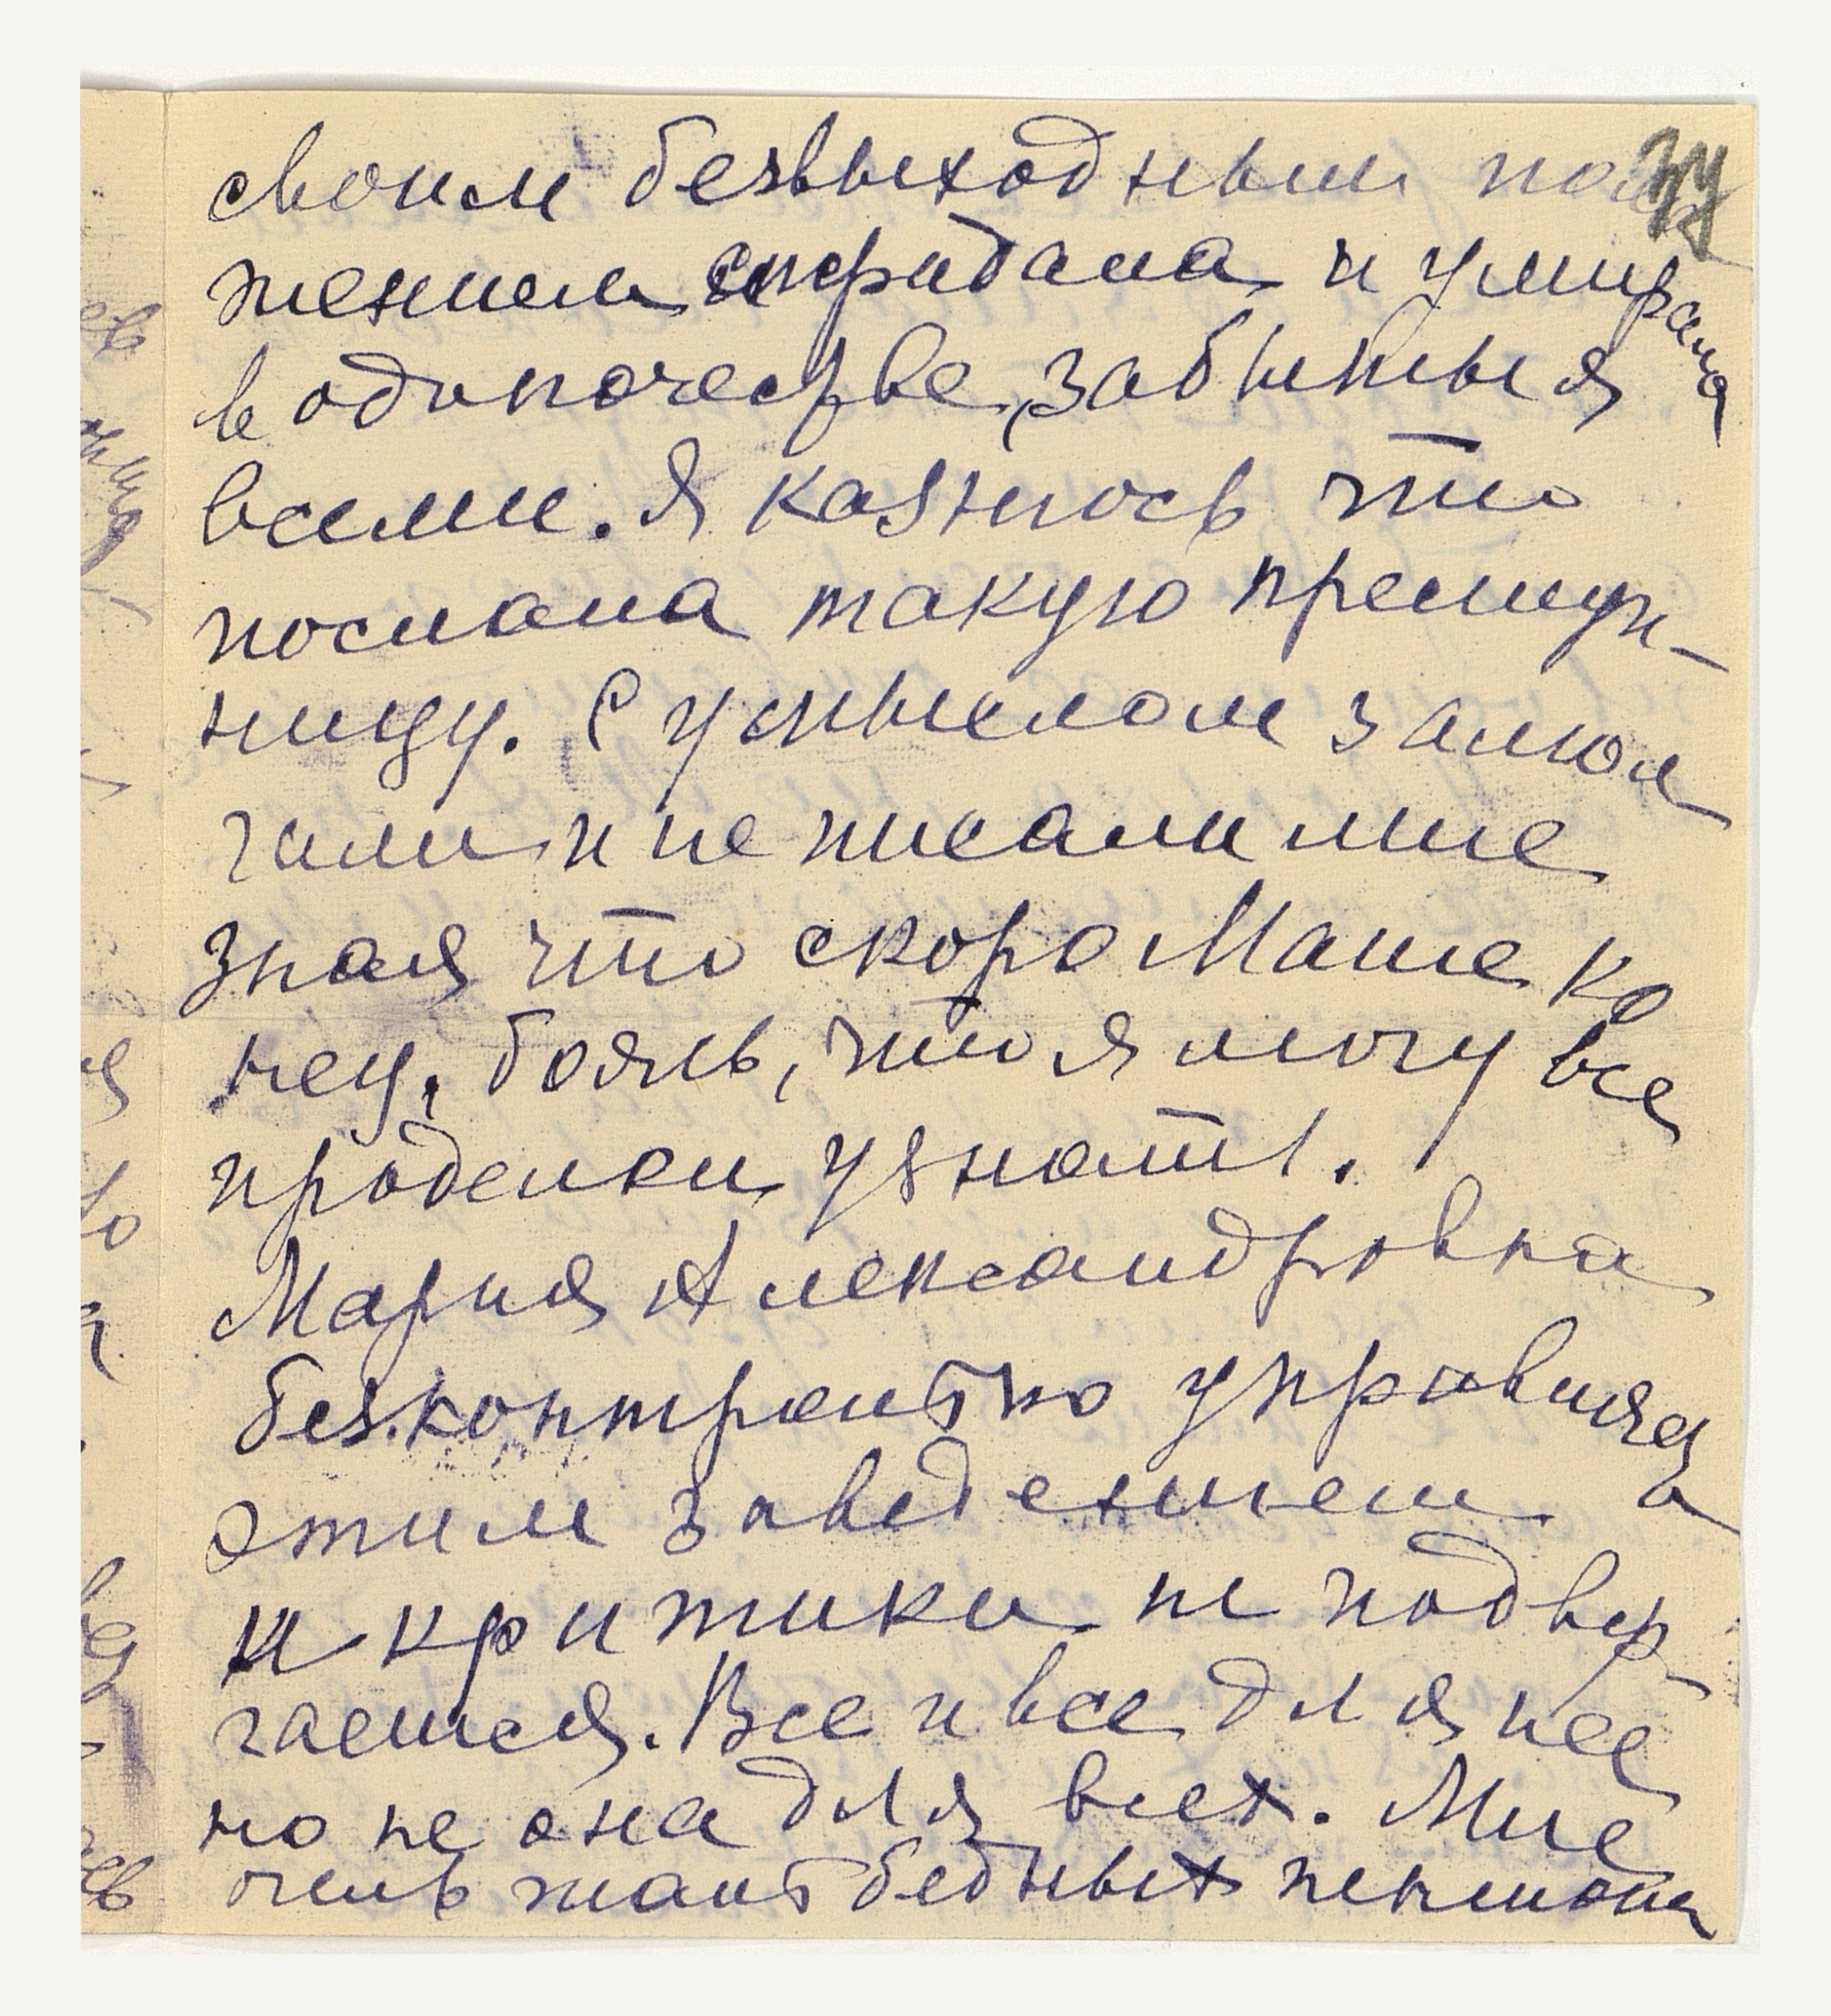 своим безвыходным поло
жением страдала и умирала
в одиночестве, забытыя
всеми. Я казнюсь что
послала такую преступ-
ницу. С умыслом замол
чали и не писали мне
зная что скоро Маше ко
нец, боясь, что я могу все
проделки узнать.
Мария Александровна
безконтрольно управляла
этим заведением
и критики не подвер-
гается. Все и все для нее
но не она для всех. Мне
очень жаль бедных пенсионе